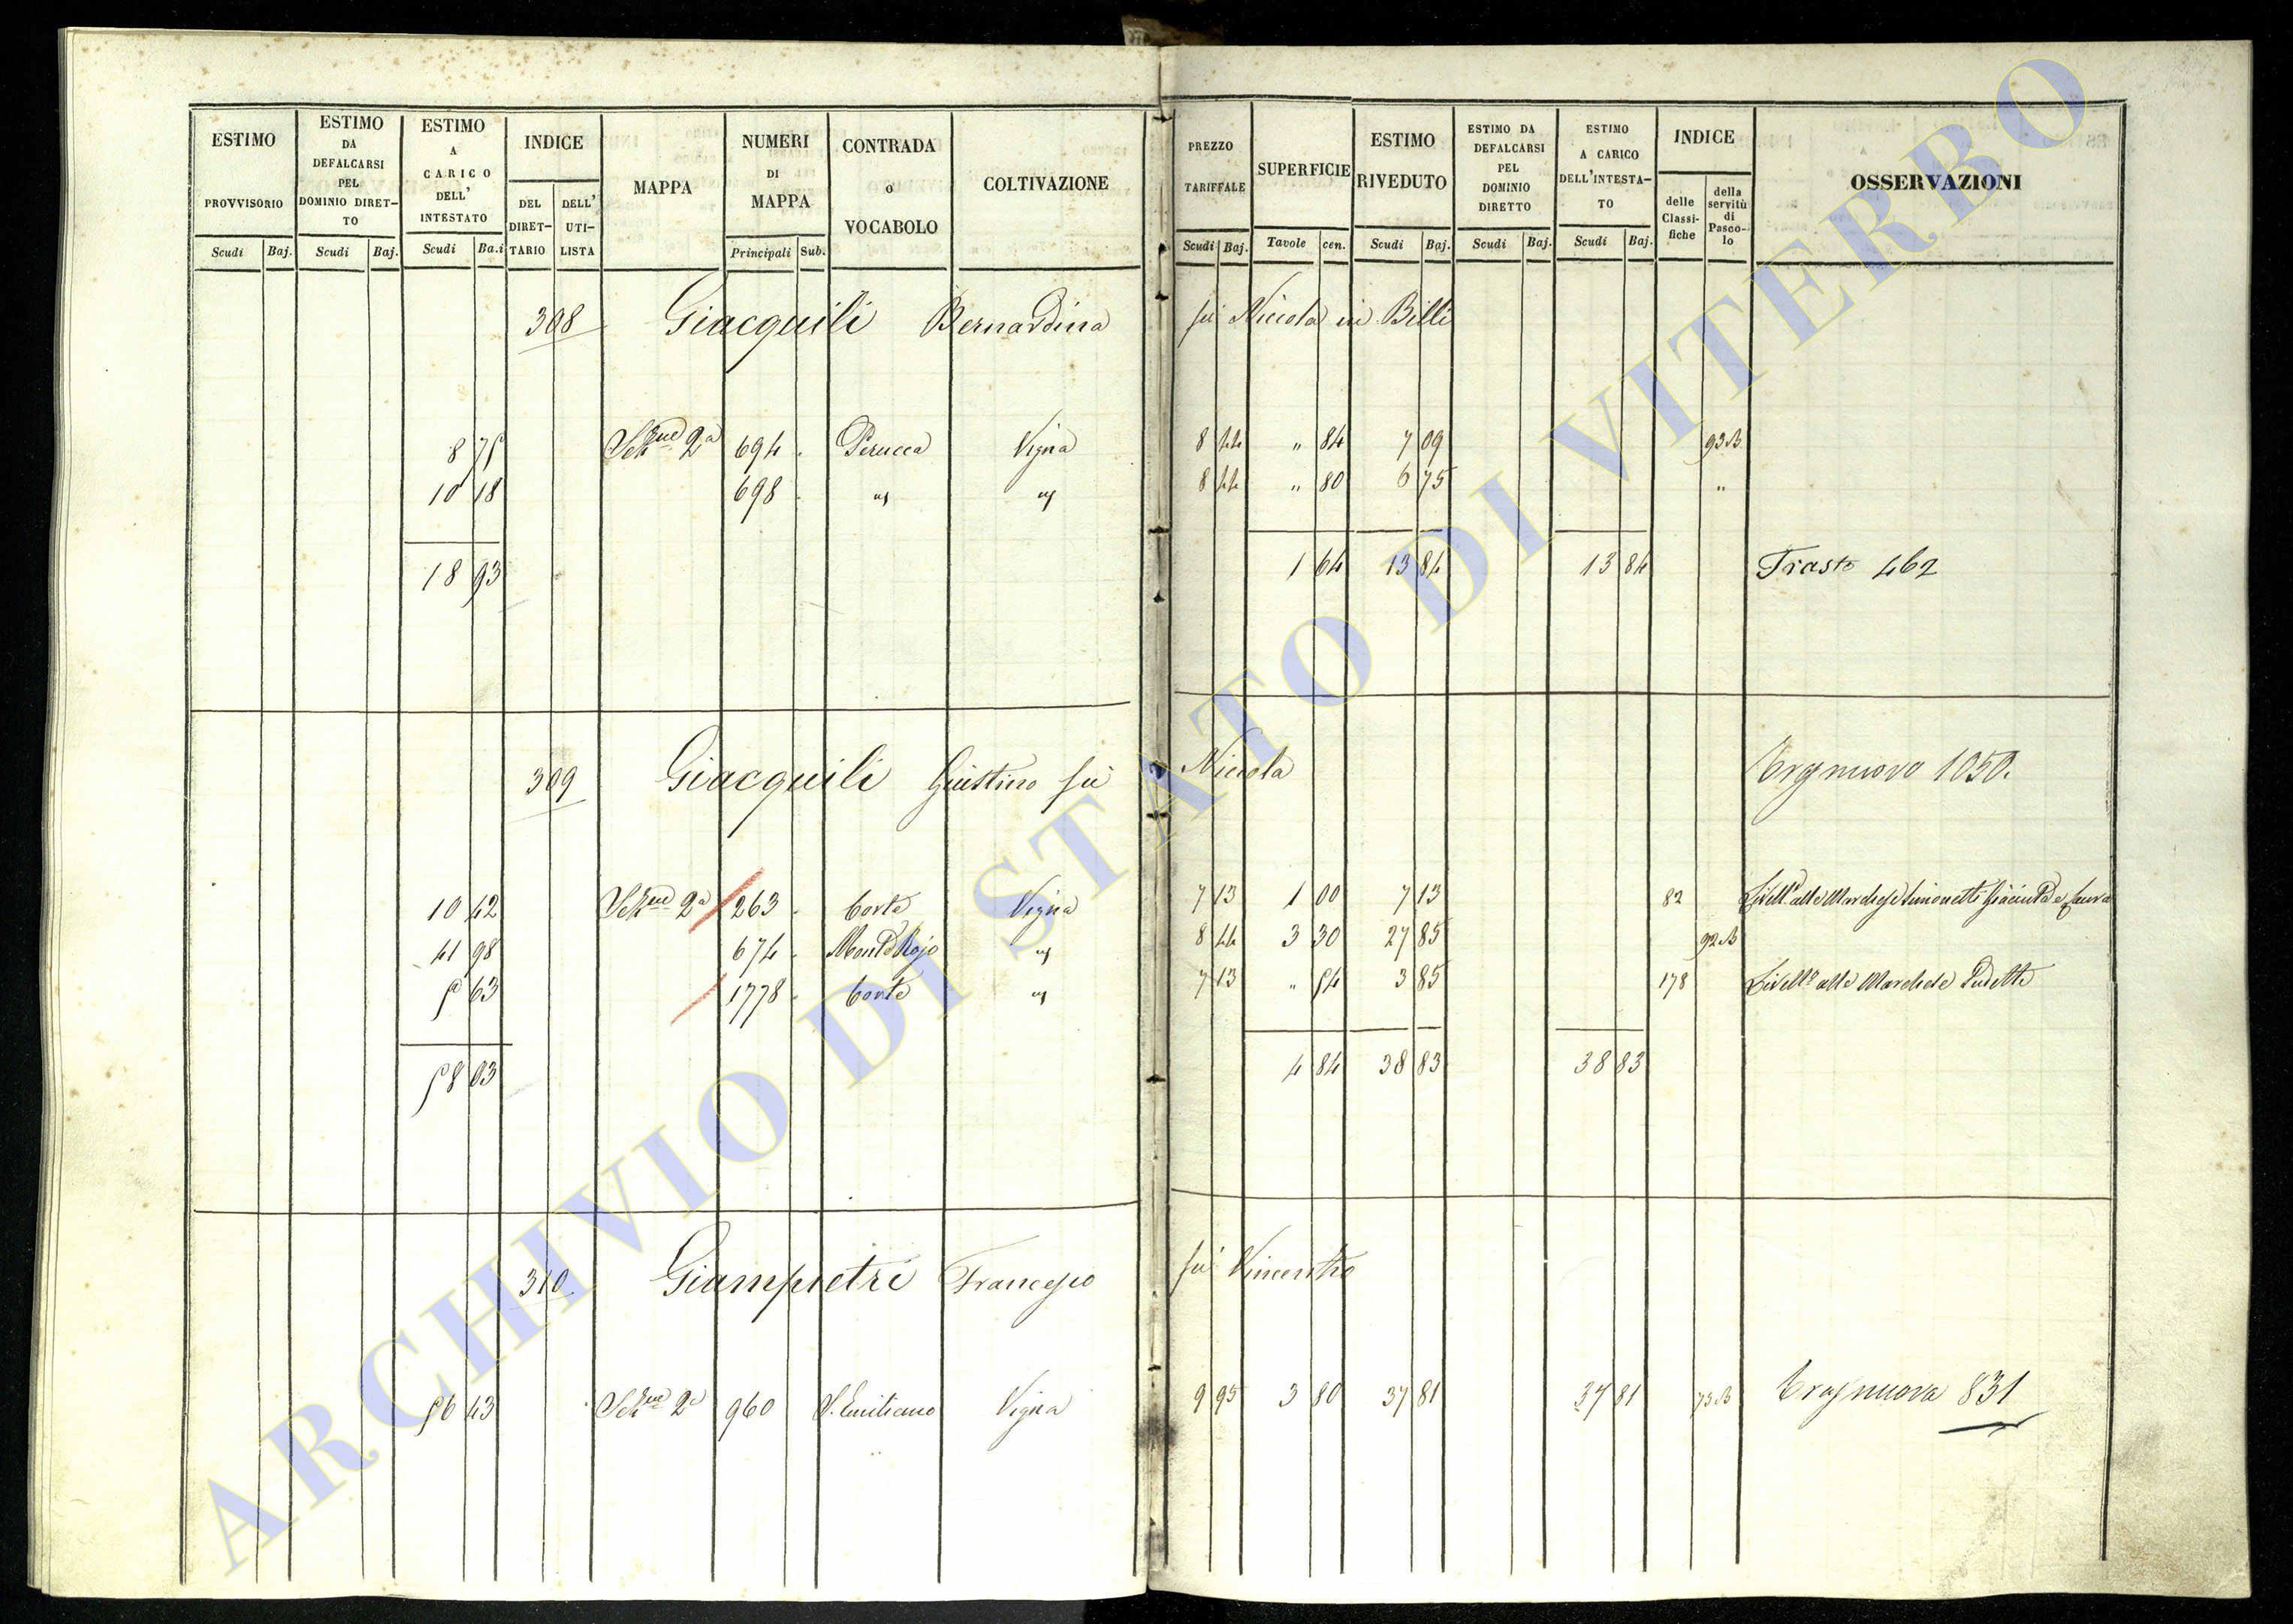 ESTIMO PROVVISORIO Scudi Baj.
ESTIMO DA DEFALCARSI PEL DOMINIO DIRET-TO Scudi Baj.
ESTIMO A CARICO DELL' INTESTATO Scudi Ba.i
INDICE DEL DIRET-TARIO DELL' UTI-LISTA
MAPPA
NUMERI DI MAPPA Principali Sub.
CONTRADA o VOCABOLO
COLTIVAZIONE
PREZZO TARIFFALE Scudi Baj.
SUPERFICIE Tavole cen.
ESTIMO RIVEDUTO Scudi Baj.
ESTIMO DA DEFALCARSI PEL DOMINIO DIRETTO Scudi Baj.
ESTIMO A CARICO DELL'INTESTA-TO Scudi Baj.
INDICE delle Classi-fiche della servitù di Pasco-lo
OSSERVAZIONI
308 Giacquili Bernardina fu Niccola in Billi
8 75 Sez.ne 2a 694 Perucca Vigna 8 44 " 84 7 09 93 B
10 18 698 " " 8 44 " 80 6 75 "
18 93 1 64 13 84 13 84 Trasto 462
309 Giacquili Giustino fu Niccola 1050.
10 42 Sez.ne 2a 263 Conte Vigna 7 13 1 00 7 13 82 Livell.o alle Marchese Simonetti Giacinta e Laura
41 98 674 Mont Rojo " 8 44 3 30 27 85 92 B
5 63 1778 Conte " 7 13 " 54 3 85 178 Livell.o alle Marchese
58 03 4 84 38 83 38 83
310 Giampietri Francesco fu Vincenzo
56 43 Sez.ne 2a 960 S. Emiliano Vigna 9 95 3 80 37 81 37 81 73 B 831
ARCHIVIO DI STATO DI VITERBO